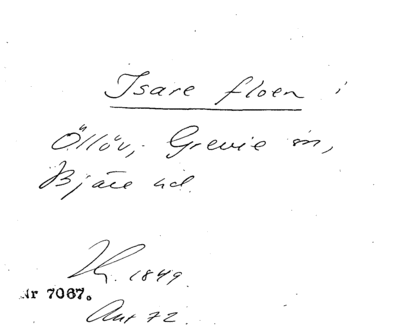 Isare floen i
Öllöv, Grevie sn,
Bjäre hd.
1849.
Nr 7067.
Aut 72.